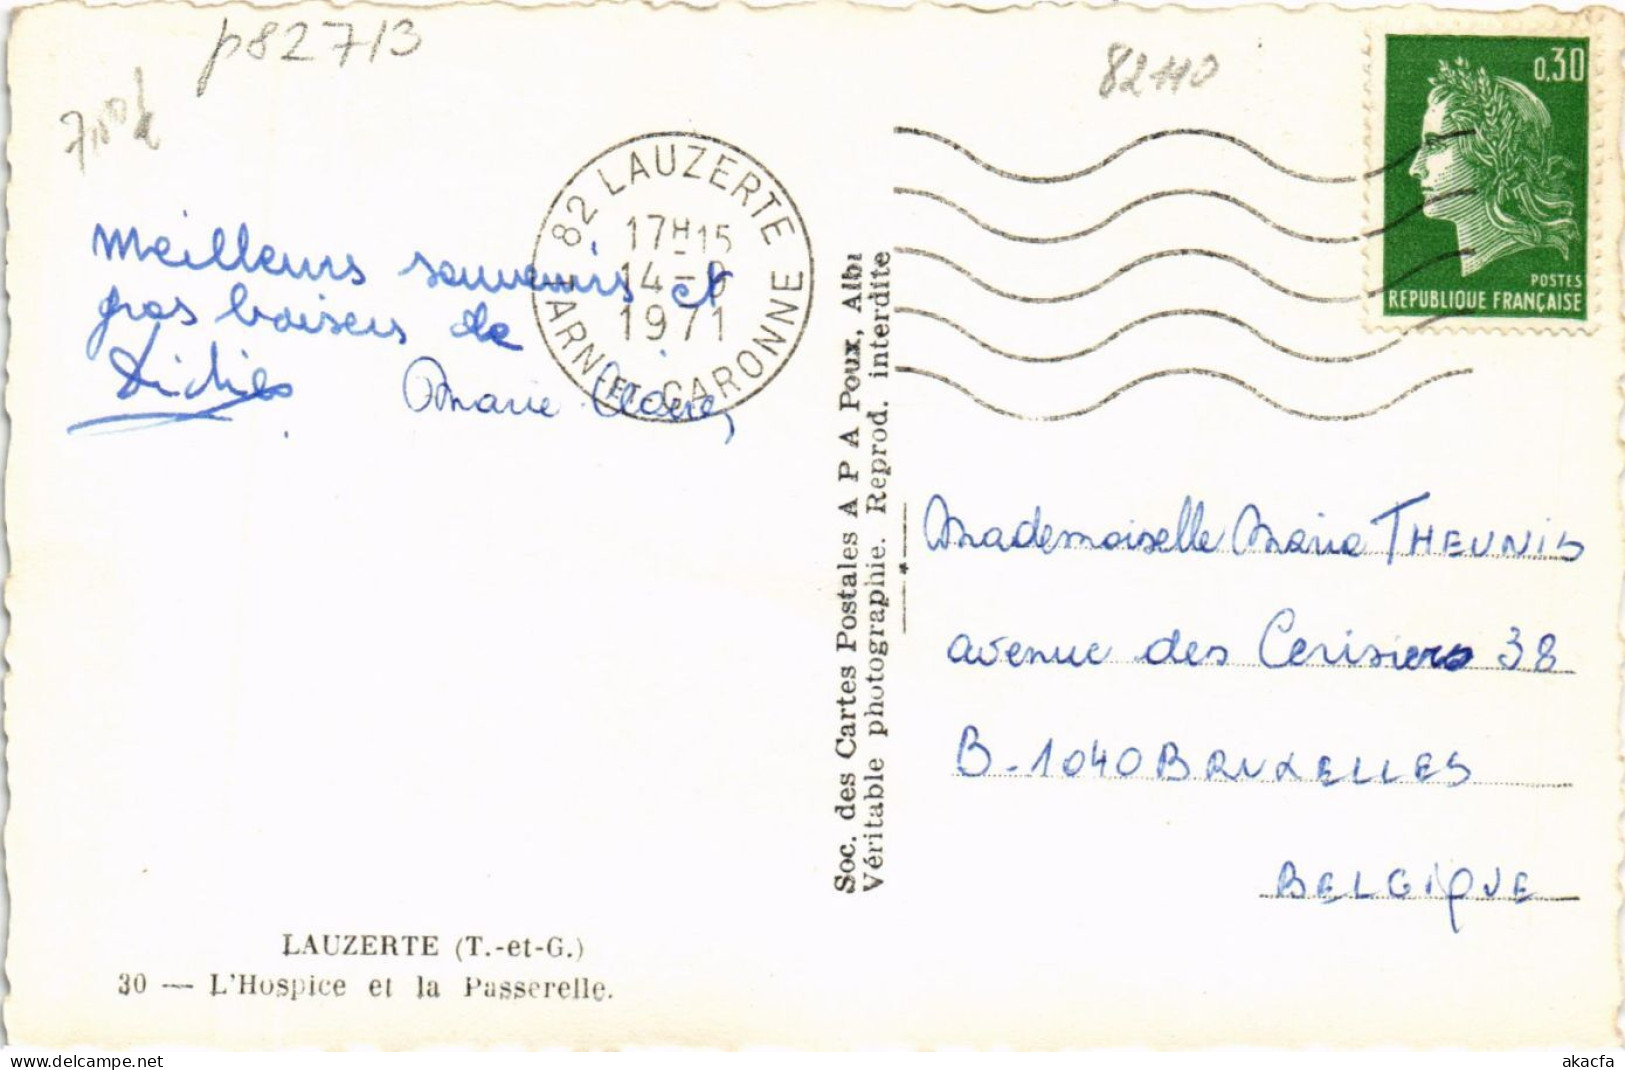 p82713
82110
0,30
POSTES
REPUBLIQUE FRANÇAISE
82 LAUZERTE
17H15
14-8
1971
TARN-ET-GARONNE
Meilleurs souvenirs et
gros baisers de
Didier Marie Claire
Soc. des Cartes Postales A P A Poux, Albi
Véritable photographie. Reprod. interdite
Mademoiselle Marie THEUNIS
avenue des Cerisiers 38
B-1040 BRUXELLES
BELGIQUE
LAUZERTE (T.-et-G.)
30 — L'Hospice et la Passerelle.
delcampe.net
akacfa